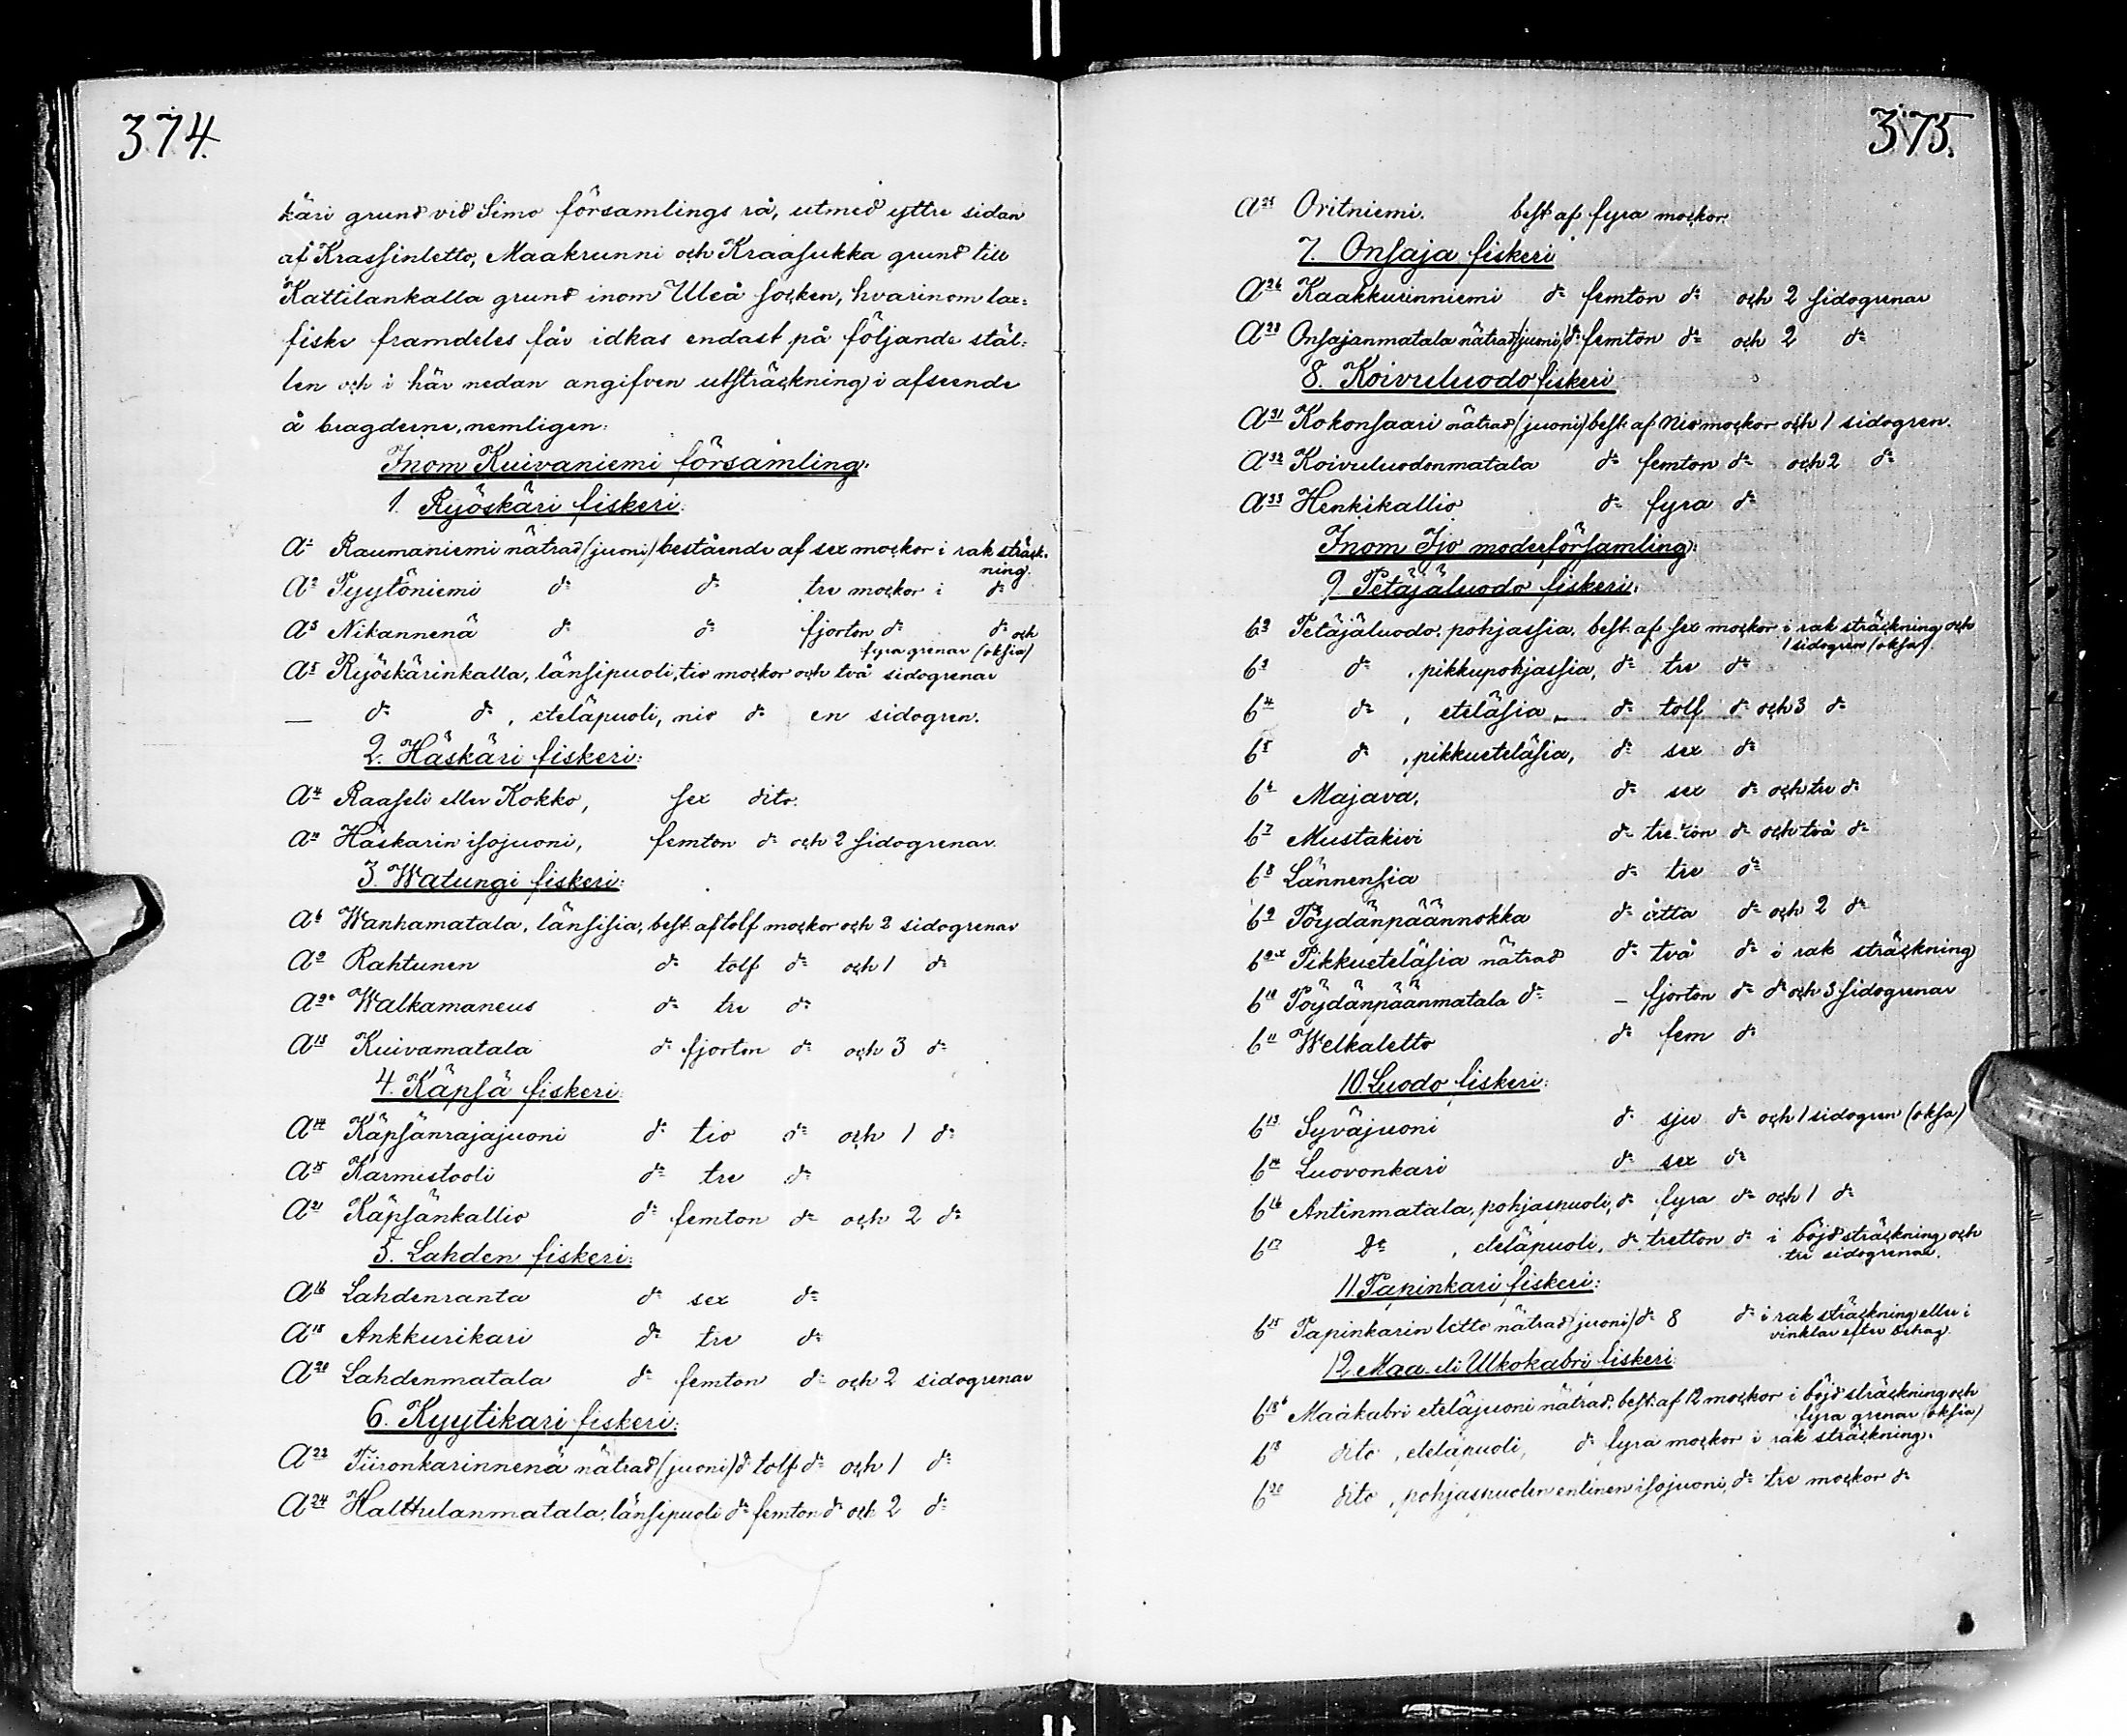 374.
käri grund vid Simo församlings rå, utmed yttre sidan
af Krassinletto, Maakrunni och Kraasukka grund till
Kattilankalla grund inom Uleå socken, hvarinom lax=
fiske framdeles får idkas endast på följande stäl=
len och i här nedan angifven utsträckning i afseende
å bragderne, nemligen:
Inom Kuivaniemi församling:
1. Ryöskäri fiskeri:
A= Raumaniemi nätrad (juoni) bestående af sex mockor i rak sträck-
ning.
A2 Tyytöniemi d:o d:o tre mockor i d:o
A3 Nikannenä d:o d:o fjorton d:o d:o och
fyra grenar (oksia)
A5 Ryöskärinkalla, länsipuoli, tio mockor och två sidogrenar
— d:o d:o, eteläpuoli, nio d:o en sidogren.
2. Häskäri fiskeri:
A4 Raaseli eller Kokko, sex dito.
A Häskarin isojuoni, femton d:o och 2 sidogrenar.
3. Watungi fiskeri:
A6 Wanhamatala, länsisia, best. af tolf mockor och 2 sidogrenar
A9 Rahtunen d:o tolf d:o och 1 d:o
A9 Walkamaneus d:o tre d:o
A13 Kuivamatala d:o fjorton d:o och 3 d:o
4. Käpsä fiskeri:
A14 Käpsänrajajuoni d:o tio d:o och 1 d:o
A15 Karmistooli d:o tre d:o
A21 Käpsänkallio d:o femton d:o och 2 d:o
5. Lahden fiskeri:
A16 Lahdenranta d:o sex d:o
A18 Ankkurikari d:o tre d:o
A20 Lahdenmatala d:o femton d:o och 2 sidogrenar
6. Kyytikari fiskeri:
A23 Tiironkarinnenä nätrad (juoni) d:o tolf d:o och 1 d:o
A24 Halttulanmatala, länsipuoli d:o femton d:o och 2 d:o
375.
A25 Oritniemi. best. af fyra mockor.
7. Onsaja fiskeri
A26 Kaakkurinniemi d:o femton d:o och 2 sidogrenar
A28 Onsajanmatala nätrad (juoni) d:o femton d:o och 2 d:o
8. Koivuluodo fiskeri
A31 Kokonsaari nätrad (juoni) best. af nio mockor och 1 sidogren.
A32 Koivuluodonmatala d:o femton d:o och 2 d:o
A33 Henkikallio d:o fyra d:o
Inom Ijo moderförsamling:
9. Petäjäluodo fiskeri:
b2 Petäjäluodo, pohjassia, best. af sex mockor i rak sträckning och
1 sidogren (oksa).
b3 d:o, pikkupohjassia, d:o tre d:o
b4 d:o, eteläsia, d:o tolf d:o och 3 d:o
b5 d:o, pikkueteläsia, d:o sex d:o
b6 Majava, d:o sex d:o och tre d:o
b7 Mustakivi d:o tretton d:o och två d:o
b8 Lännensia d:o tre d:o
b9 Pöydänpäännokka d:o åtta d:o och 2 d:o
b9x Pikkueteläsia nätrad d:o två d:o i rak sträckning
b10 Pöydänpäänmatala d:o — fjorton d:o d:o och 3 sidogrenar
b11 Welkaletto d:o fem d:o
10. Luodo fiskeri:
b13 Syväjuoni d:o sju d:o och 1 sidogren (oksa)
b14 Luovonkari d:o sex d:o
b16 Antinmatala, pohjaspuoli, d:o fyra d:o och 1 d:o
b17 D:o, eteläpuoli, d:o tretton d:o i böjd sträckning och
tre sidogrenar.
11. Papinkari fiskeri:
b15 Papinkarin letto nätrad (juoni) d:o 8 d:o i rak sträckning eller i
vinklar efter behag.
12. Maa- eli Ulkokabri fiskeri
b18b Maakabri eteläjuoni nätrad, best. af 12 mockor i böjd sträckning och
fyra grenar (oksia)
b18 dito, eteläpuoli, d:o fyra mockor i rak sträckning.
b20 dito, pohjaspuolen entinen isojuoni, d:o tre mockor d:o